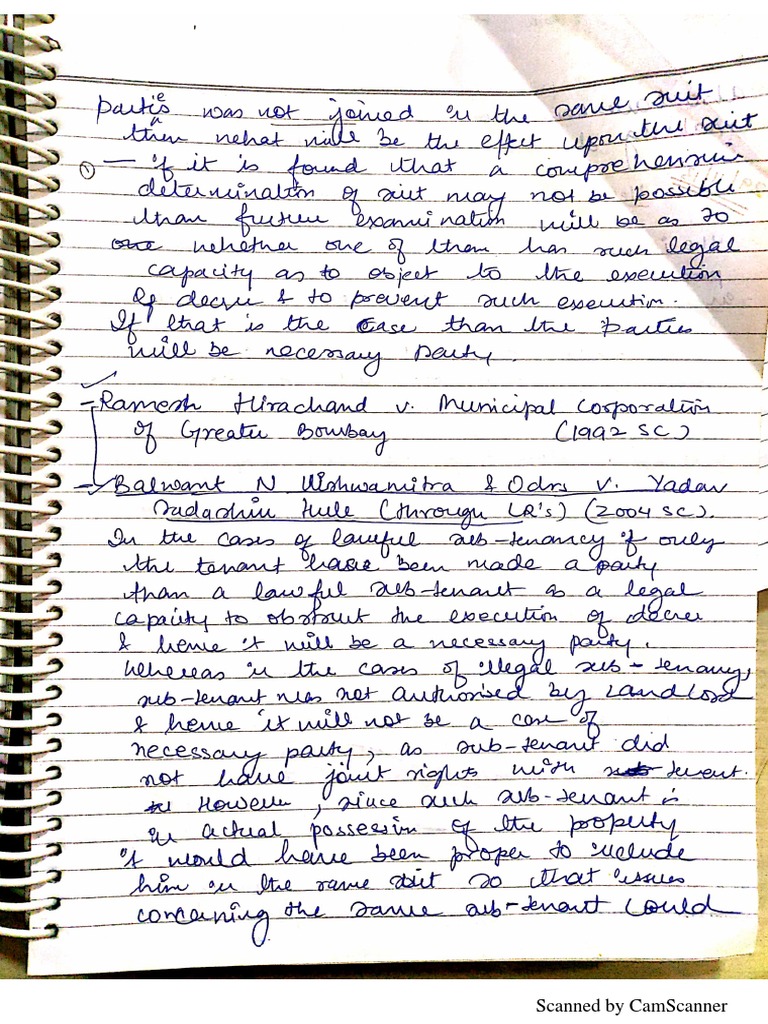 parties was not joined in the same suit
then what will be the effect upon the suit
① — if it is found that a comprehensive
determination of suit may not be possible
than further examination will be as to
whether one of them has such legal
capacity as to object to the execution
of decree & to prevent such execution.
If that is the case than the parties
will be necessary party.
- Ramesh Hirachand v. Municipal Corporation
of Greater Bombay (1992 SC)
- Balwant N Vishwamitra & Odrs v. Yadav
Sadashiv Mule (through LR's) (2004 SC).
In the cases of lawful sub-tenancy if only
the tenant have been made a party
than a lawful sub-tenant as a legal
capacity to obstruct the execution of decree
& hence it will be a necessary party.
Whereas in the cases of illegal sub-tenancy,
sub-tenant was not authorised by landlord
& hence it will not be a case of
necessary party, as sub-tenant did
not have joint rights with tenent.
However, since such sub-tenant is
in actual possession of the property
it would have been proper to include
him in the same suit so that issues
concerning the same sub-tenant could
Scanned by CamScanner